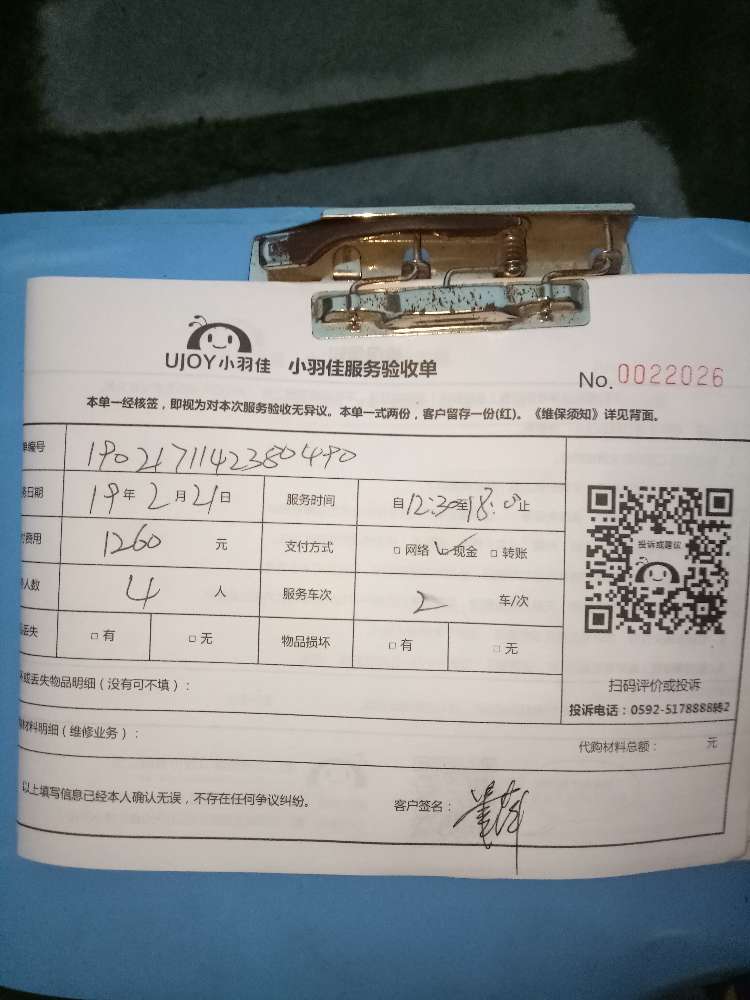 UJOY小羽佳 小羽佳服务验收单
No.0022026
本单一经核签，即视为对本次服务验收无异议。本单一式两份，客户留存一份(红)。《维保须知》详见背面。
单编号 1902171142380490
日期 19年2月21日 服务时间 自12:30至18:00止
费用 1260 元 支付方式 □网络 ☑现金 □转账
人数 4 人 服务车次 2 车/次
丢失 □有 □无 物品损坏 □有 □无
投诉或建议
扫码评价或投诉
投诉电话：0592-5178888转2
或丢失物品明细（没有可不填）：
材料明细（维修业务）： 代购材料总额： 元
以上填写信息已经本人确认无误，不存在任何争议纠纷。 客户签名：